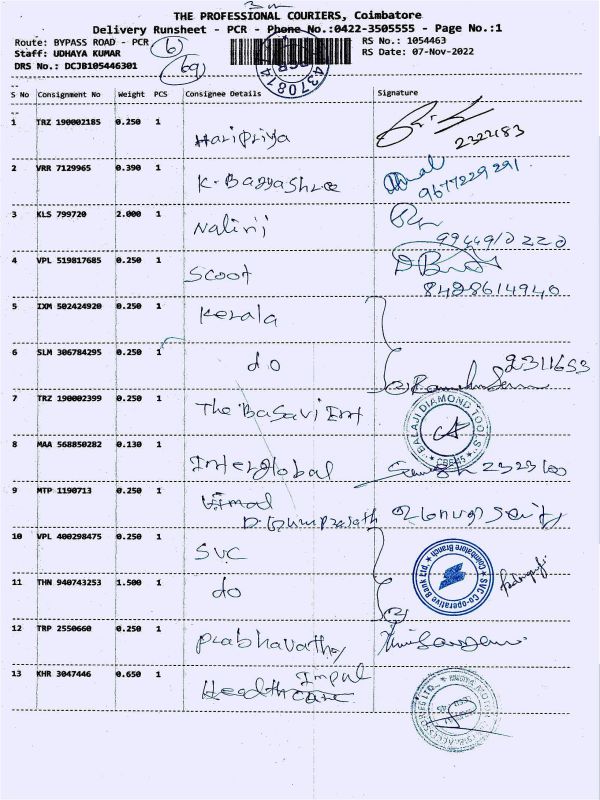 3m
THE PROFESSIONAL COURIERS, Coimbatore
Delivery Runsheet - PCR - Phone No.:0422-3505555 - Page No.:1
Route: BYPASS ROAD - PCR
RS No.: 1054463
Staff: UDHAYA KUMAR
RS Date: 07-Nov-2022
DRS No.: DCJB105446301
69
4370814
PCR
S No Consignment No Weight PCS Consignee Details Signature
1 TRZ 190002185 0.250 1 Haripriya
2322183
2 VRR 7129965 0.390 1 K. Bagyashree
9677229291
3 KLS 799720 2.000 1 Nalini
9944910220
4 VPL 519817685 0.250 1 Scoot
8428614940
5 IXM 502424920 0.250 1 Kerala
6 SLM 306784295 0.250 1 do 2311653
7 TRZ 190002399 0.250 1 The Basavi Ent
BALAJI DIAMOND TOOLS
CBE-45
8 MAA 568850282 0.130 1 Interglobal 2323100
9 MTP 1190713 0.250 1 Vimal
10 VPL 400298475 0.250 1 SVC
SVC Co-operative Bank Ltd.
Coimbatore Branch
11 THN 940743253 1.500 1 do
12 TRP 2550660 0.250 1 Prabhavathy
13 KHR 3047446 0.650 1 Impal
Healthcare